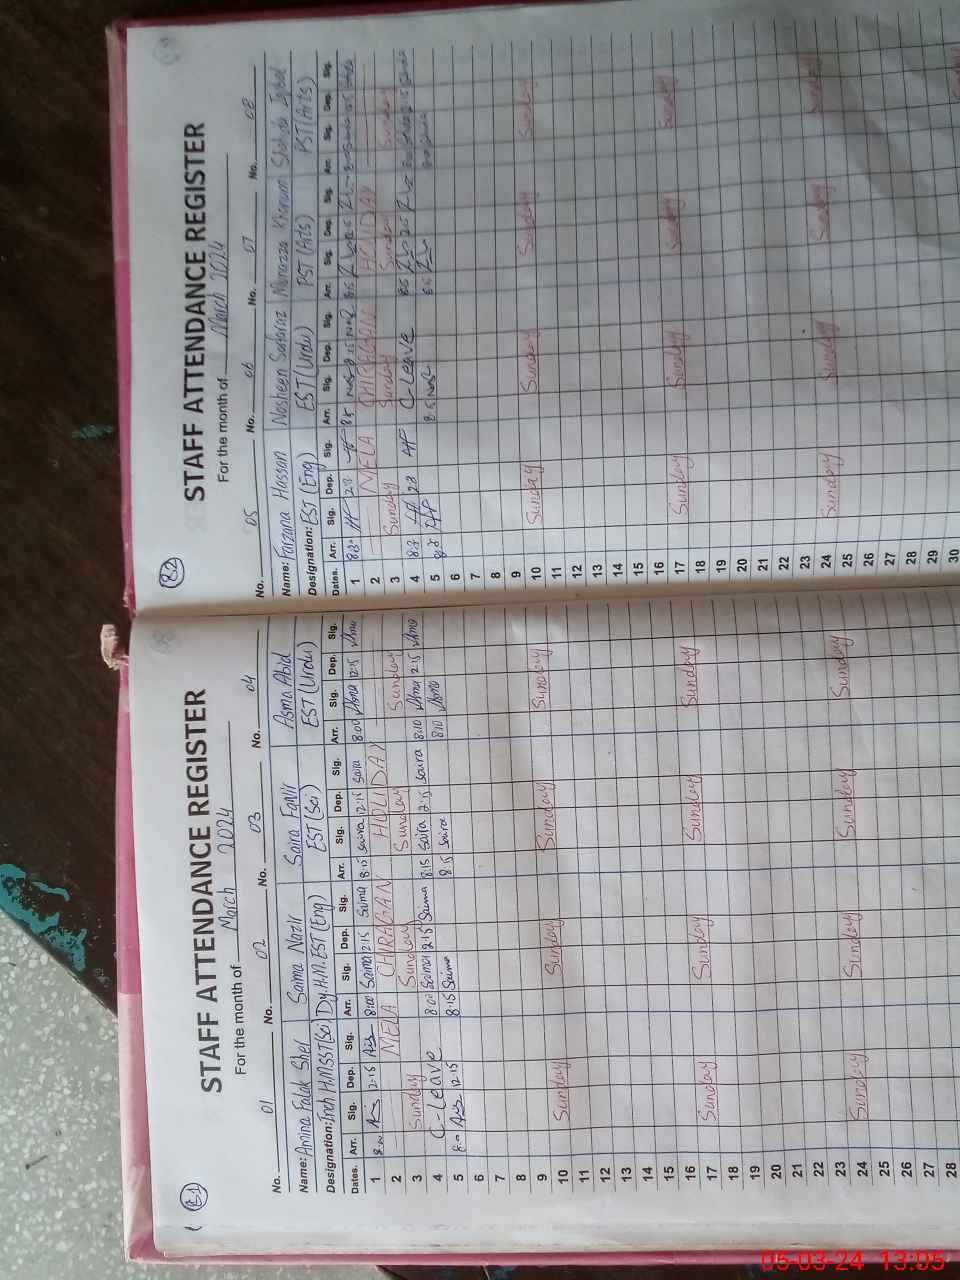 81
STAFF ATTENDANCE REGISTER
For the month of March 2024
No. 01 No. 02 No. 03 No. 04
Name: Amina Falak Sher Saima Nazir Saira Faqir Asma Abid
Designation: Inch H.M SST(Sci) Dy.H.M.EST(Eng) EST (Sci) EST (Urdu)
Dates. Arr. Sig. Dep. Sig. Arr. Sig. Dep. Sig. Arr. Sig. Dep. Sig. Arr. Sig. Dep. Sig.
1 8:00 2:15 8:00 Saima 12:15 Saima 8:15 Saira 12:15 Saira 8:00 Asma 12:15 Asma
2 MELA CHIRAGAN HOLIDAY
3 Sunday Sunday Sunday Sunday
4 C-Leave 8:00 Saima 2:15 Saima 8:15 Saira 2:15 Saira 8:10 Asma 2:15 Asma
5 8:00 12:15 8:15 Saima 8:15 Saira 8:10 Asma
6
7
8
9
10 Sunday Sunday Sunday Sunday
11
12
13
14
15
16
17 Sunday Sunday Sunday Sunday
18
19
20
21
22
23
24 Sunday Sunday Sunday Sunday
25
26
27
28
82
STAFF ATTENDANCE REGISTER
For the month of March 2024
No. 05 No. 06 No. 07 No. 08
Name: Farzana Hassan Nosheen Sarfaraz Khanum Shahida Iqbal
Designation: EST (Eng) EST (Urdu) PST (Arts) PST (Arts)
Dates. Arr. Sig. Dep. Sig. Arr. Sig. Dep. Sig. Arr. Sig. Dep. Sig. Arr. Sig. Dep. Sig.
1 8:20 2:3 8:5 12:15 8:5
2 MELA CHIRAGAN HOLIDAY
3 Sunday Sunday Sunday Sunday
4 8:2 2:3 C-Leave 8:5 2:5 2:15
5 8:2 8:5 8:5
6
7
8
9
10 Sunday Sunday Sunday Sunday
11
12
13
14
15
16
17 Sunday Sunday Sunday Sunday
18
19
20
21
22
23
24 Sunday Sunday Sunday Sunday
25
26
27
28
29
30
05-03-24 13:05